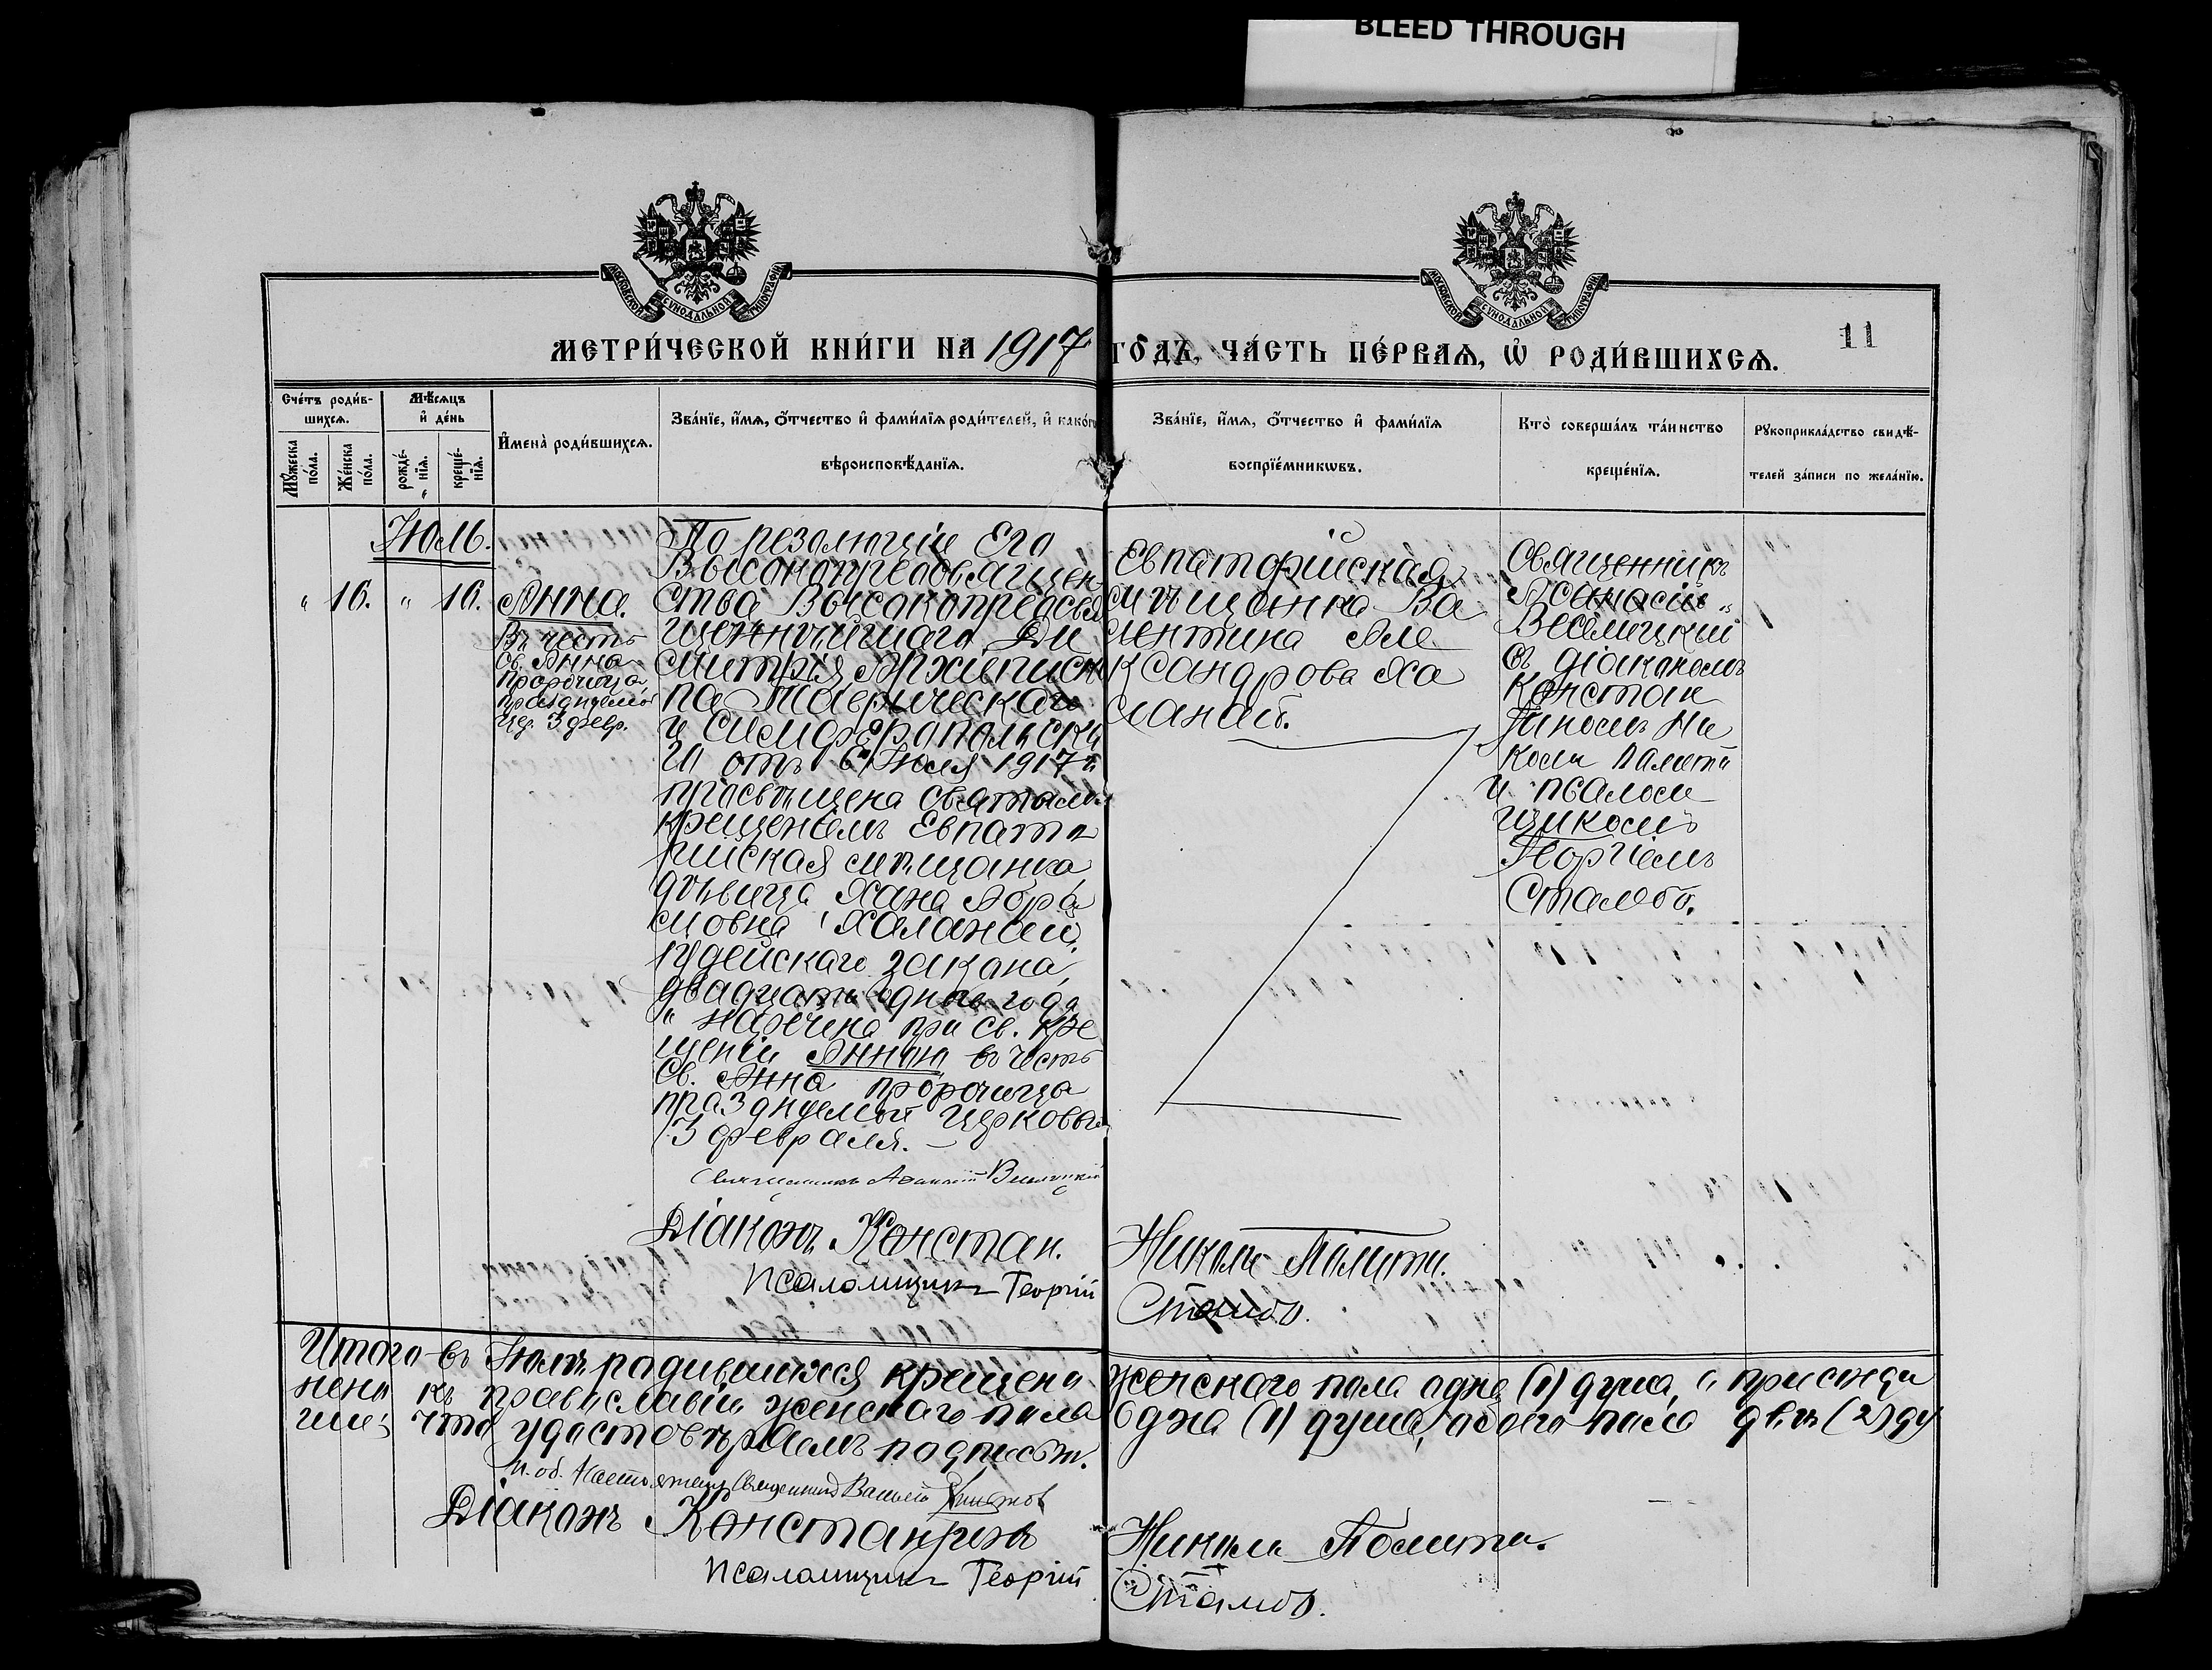 BLEED THROUGH
МОСКОВСКОЙ СѴНОДАЛЬНОЙ ТИПОГРАФІИ
МОСКОВСКОЙ СѴНОДАЛЬНОЙ ТИПОГРАФІИ
11
МЕТРИ́ЧЕСКОЙ КНИ́ГИ НА 1917 ГОДЪ, ЧА́СТЬ ПЕ́РВАѦ, Ѡ҆ РОДИ́ВШИХСѦ.
Сче́тъ роди́в-
шихсѧ.
Мѣ́сѧцъ
и҆ де́нь
Мꙋ́жеска
по́ла.
Же́нска
по́ла.
рожде́-
нїѧ.
креще́-
нїѧ.
И҆мена̀ роди́вшихсѧ.
Зва́нїе, и҆́мѧ, ѻ҆́тчество и҆ фами́лїѧ роди́телей, и҆ како́гѡ
вѣроисповѣ́данїѧ.
Зва́нїе, и҆́мѧ, ѻ҆́тчество и҆ фами́лїѧ
воспрїе́мникѡвъ.
Кто̀ соверша́лъ та́инство
креще́нїѧ.
Рꙋкоприкла́дство свидѣ́-
телей за́писи по жела́нїю.
Июль.
" 16. " 16.
Анна.
Въ честь
св. Анна
пророчица
празднуемой
цер. 3 февр.
По резолюціи Его
Высокопреосвящен
ства Высокопреосвя
щеннѣйшаго Ди
митрія Архіеписко
па Таврическаго
и Симферопольска
го отъ 6 Июля 1917 г.
просвѣщена святымъ
крещеніемъ Евпато
рійская мѣщанка
дѣвица Хана Абра
мовна Халанай,
іудейскаго закона,
двадцати одного года
и наречена при св. кре
щеніи Анною въ честь
св. Анна пророчица
празднуемый церковью
3 февраля.
Священникъ Аѳанасій Веселицкій
Діаконъ Констан.
Псаломщикъ Георгій
Евпаторійская
мѣщанка Ва
лентина Але
ксандрова Ха
ланай.
Священникъ
Аѳанасій
Веселицкій
съ діакономъ
Констан
тиномъ Ни
коли Полити
и псалом
щикомъ
Георгіемъ
Стамбо.
Николи Полити.
Стамбо.
Итого въ Июлѣ родившихся крещено женскаго пола одна (1) душа, и присоеди
нено къ православію женскаго пола одна (1) душа, обоего пола двѣ (2) ду
ши, что удостовѣряемъ подписью.
И. об. Настоятеля Священникъ Василій
Діаконъ Константинъ Николи Полити.
Псаломщикъ Георгій Стамбо.